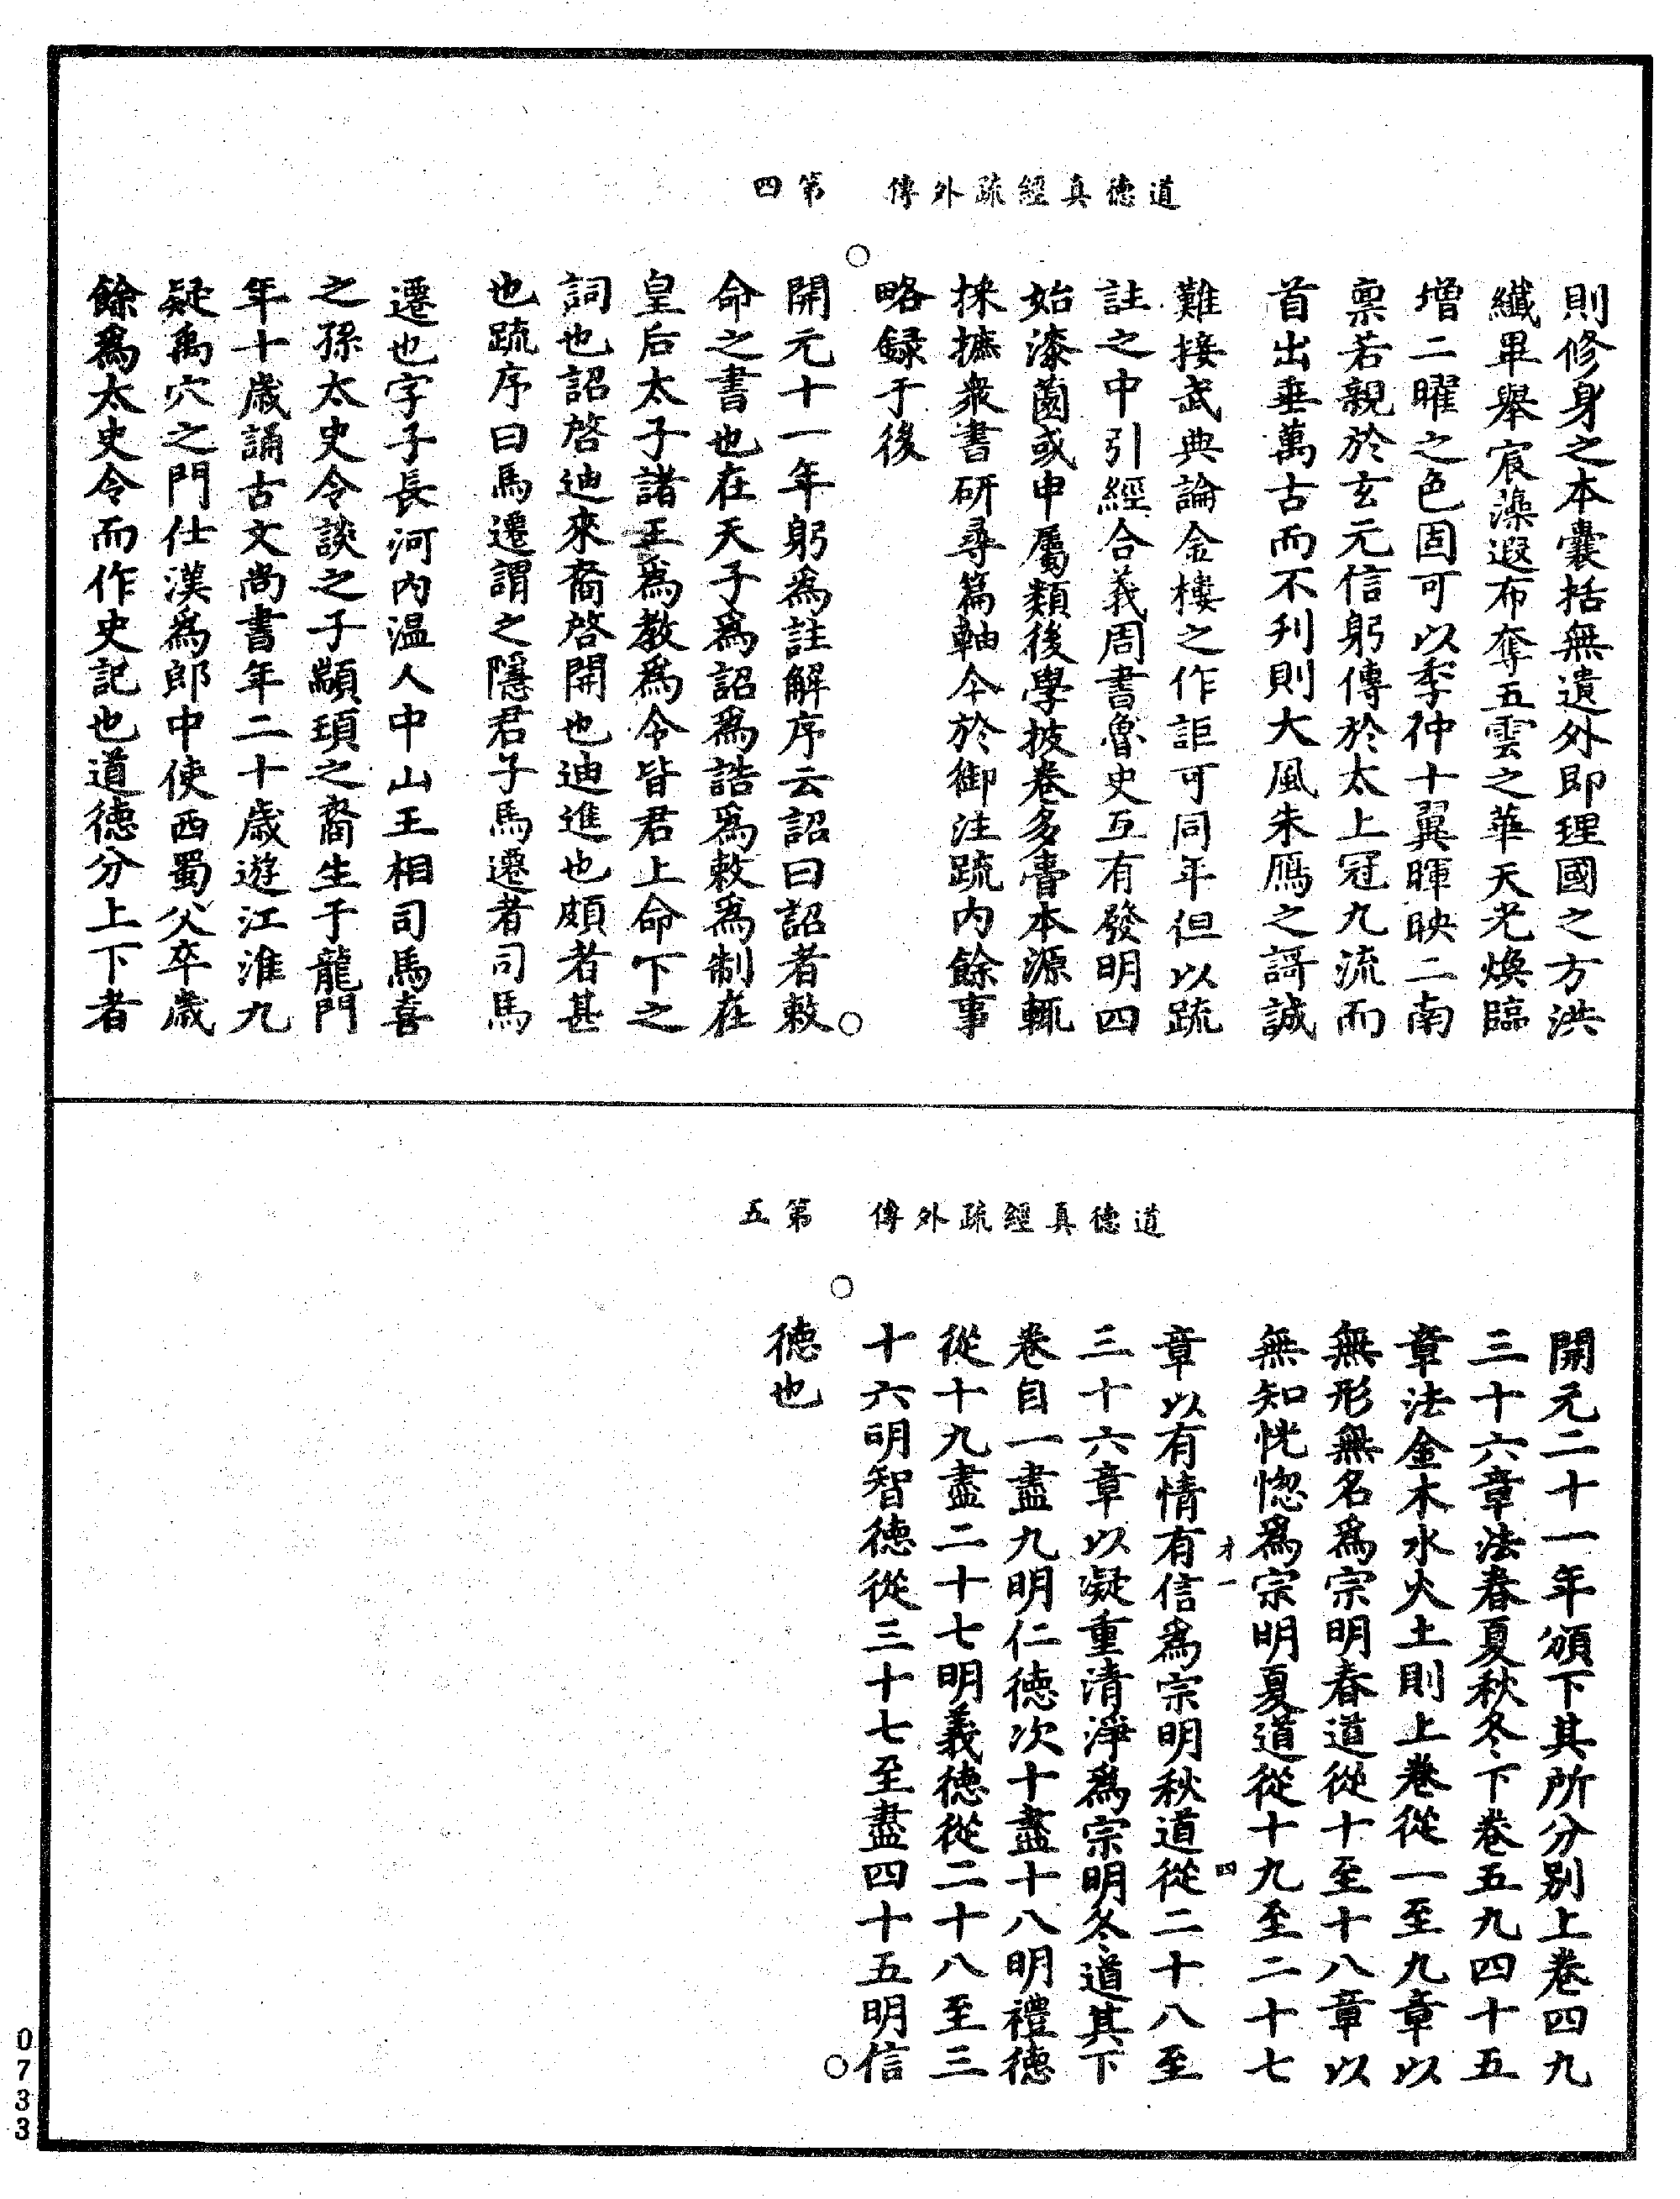 道德真經疏外傳　第四
則修身之本囊括無遺外即理國之方洪
纎畢舉宸藻遐布奪五雲之華天光煥臨
增二曜之色固可以季仲十翼暉映二南
禀若親於玄元信躬傳於太上冠九流而
首出垂萬古而不刋則大風朱鴈之謌誠
難接武典論金樓之作詎可同年但以疏
註之中引經合義周書魯史互有發明四
始漆園或申屬類後學披卷多瞢本源輒
採摭衆書研尋篇軸令於御注疏内餘事
略録于後
開元十一年躬爲註解序云詔曰詔者敕
命之書也在天子爲詔爲誥爲敕爲制在
皇后太子諸王爲教爲令皆君上命下之
詞也詔啓迪來裔啓開也迪進也頗者甚
也疏序曰馬遷謂之隱君子馬遷者司馬
遷也字子長河内温人中山王相司馬喜
之孫太史令談之子顓頊之裔生于龍門
年十歲誦古文尚書年二十歲遊江淮九
疑禹穴之門仕漢爲郎中使西蜀父卒歲
餘爲太史令而作史記也道德分上下者
道德真經疏外傳　第五
開元二十一年頒下其所分别上卷四九
三十六章法春夏秋冬下卷五九四十五
章法金木水火土則上卷從一至九章以
無形無名爲宗明春道從十至十八章以
無知恍惚爲宗明夏道從十九至二十七
才一　四
章以有情有信爲宗明秋道從二十八至
三十六章以凝重清淨爲宗明冬道其下
卷自一盡九明仁德次十盡十八明禮德
從十九盡二十七明義德從二十八至三
十六明智德從三十七至盡四十五明信
德也
0733